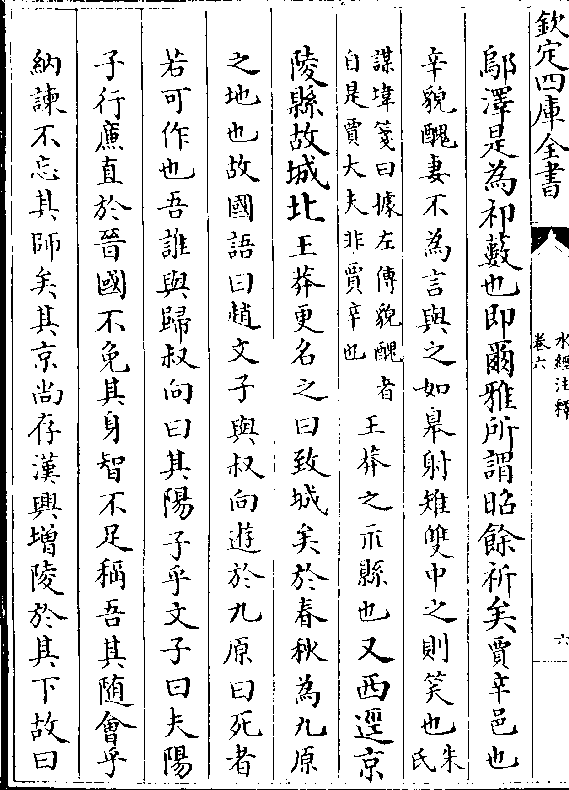 欽定四庫全書
水經注釋
卷六
六
鄔澤是為祁藪也即爾雅所謂昭餘祁矣賈辛邑也
辛貌醜妻不為言與之如皋射雉雙中之則笑也朱氏
謀㙔箋曰據左傳貌醜者
自是賈大夫非賈辛也
王莽之示縣也又西逕京
陵縣故城北王莽更名之曰致城矣於春秋為九原
之地也故國語曰趙文子與叔向遊於九原曰死者
若可作也吾誰與歸叔向曰其陽子乎文子曰夫陽
子行廉直於晉國不免其身智不足稱吾其隨會乎
納諫不忘其師矣其京尚存漢興增陵於其下故曰